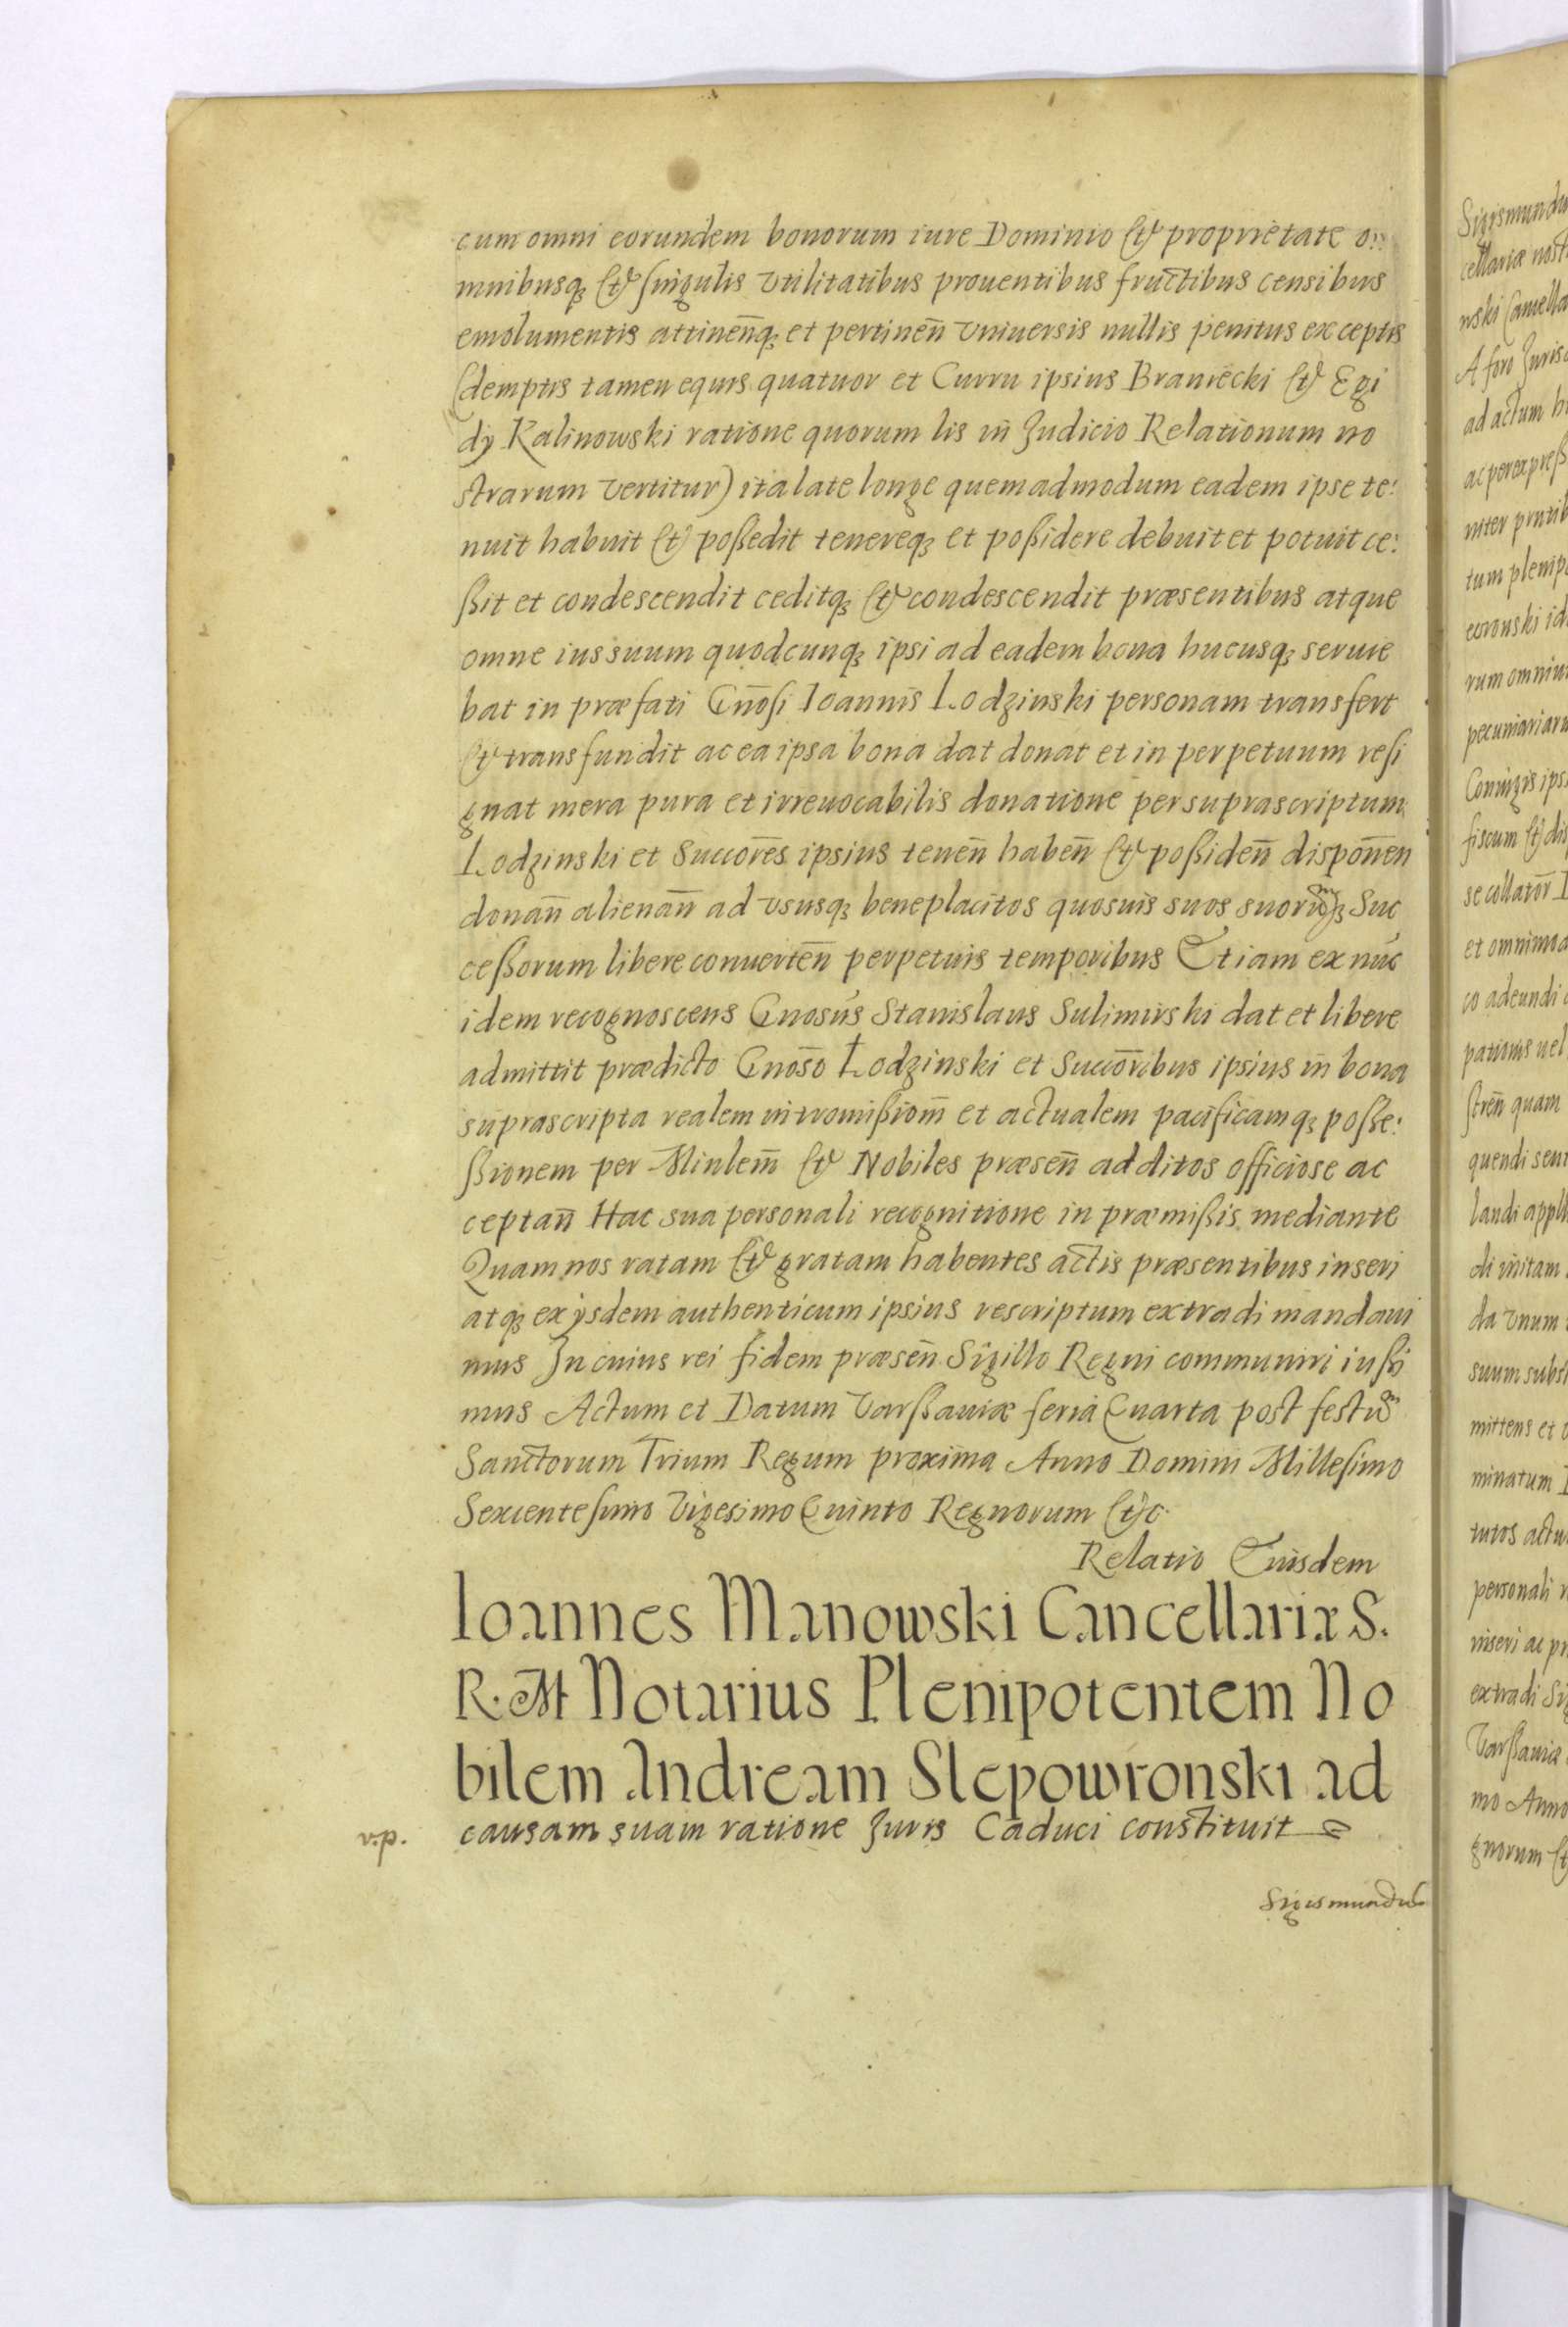 cum omni eorundem bonorum iure Dominio et proprietate o:
mnibusq; et singulis vtilitatibus prouentibus fructibus censibus
emolumentis attinen̄q; et pertinen̄ vniuersis nullis penitus exceptis
(demptis tamen equis quatuor et Curru ipsius Braniecki et Egi
dij Kalinowski ratione quorum lis in Judicio Relationum no
strarum vertitur) ita late longe quemadmodum eadem ipse te:
nuit habuit et poßedit tenereq; et poßidere debuit et potuit ce:
ßit et condescendit ceditq; et condescendit præsentibus atque
omne ius suum quodcunq; ipsi ad eadem bona hucusq; seruie
bat in præfati Gn̄osi Ioannis Lodzinski personam transfert
et transfundit ac ea ipsa bona dat donat et in perpetuum resi
gnat mera pura et irreuocabilis donatione per suprascriptum
Lodzinski et Succōres ipsius tenen̄ haben̄ et poßiden̄ dispōnen
donan̄ alienan̄ ad vsusq; beneplacitos quosuis suos suorumq; Suc
ceßorum libere conuerten̄ perpetuis temporibus Etiam ex nūc
idem recognoscens Gnosus Stanislaus Sulimirski dat et libere
admittit prædicto Gnōso Łodzinski et Succōribus ipsius in bona
suprascripta realem intromißiom̄ et actualem pacificamq; poße:
ßionem per Minlem̄ et Nobiles præsen̄ additos officiose ac
ceptan̄ Hac sua personali recognitione in præmißis mediante
Quam nos ratam et gratam habentes actis præsentibus inseri
atq; ex ijsdem authenticum ipsius rescriptum extradi mandaui
mus In cuius rei fidem præsen̄ Sigillo Regni communiri iußi
mus Actum et Datum Varßauiæ feria Quarta post festum
Sanctorum Trium Regum proxima Anno Domini Millesimo
Sexcentesimo Vigesimo Quinto Regnorum etc.
Relatio Eiusdem
Ioannes Manowski Cancellariæ S.
R. M Notarius Plenipotentem No
bilem Andream Slepowronski ad
v.p. causam suam ratione Juris Caduci constituit
Sigismundus
Sigismundu
cellariæ nost
nski Cancella
A foro Juris
ad actum h
ac per expreß
tum plenip
rum omniu
pecuniariaru
Coniugis ips
fiscum et dis
se collator̄
et omnimo
co adeundi
patiums uel
stren̄ quam
quendi seu
landi appl
di vnitam
da vnum
suum subst
mittens et
minatum
tutos actu
personali
inseri ac pr
extradi Si
Varßauiæ
mo Anno
gnorum et